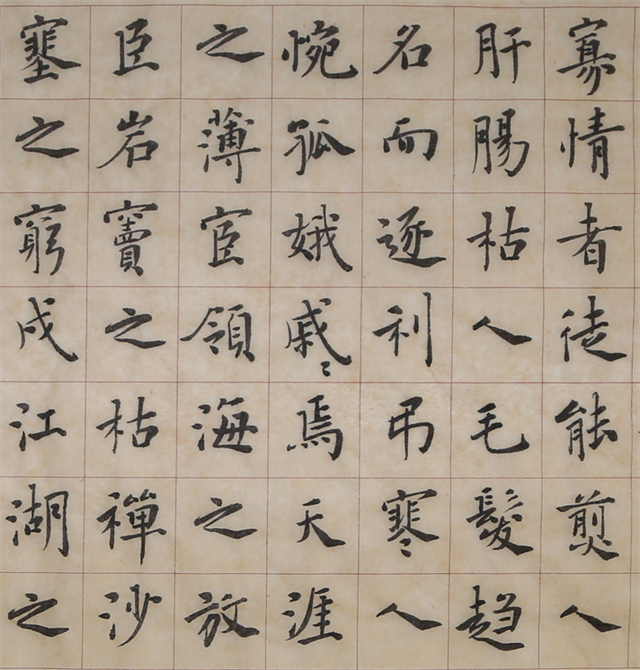 寡情者徒能煎人
肝腸枯人毛髮趋
名而逐利弔寒人
惋孤娥戚〻焉天涯
之薄宦領海之放
臣岩竇之枯禪沙
塞之窮戍江湖之